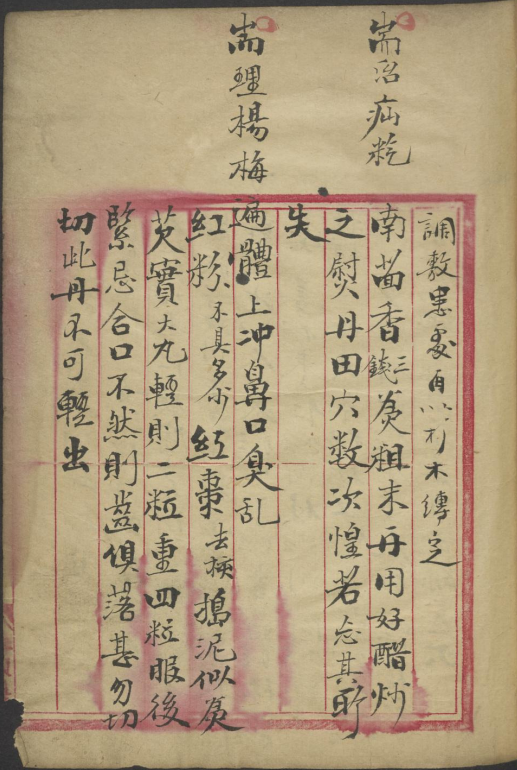 耑治疝乾
調敷患處再以杉木縛定
南茴香三錢為粗末再用好醋炒
之熨丹田穴数次惶若忘其所
失
耑理楊梅
遍體上冲鼻口臭乱
紅粉不具多少紅棗去核搗泥似為
芡實大丸輕則二粒重四粒服後
緊忌合口不然則齒俱落甚勿切
切此丹不可輕出